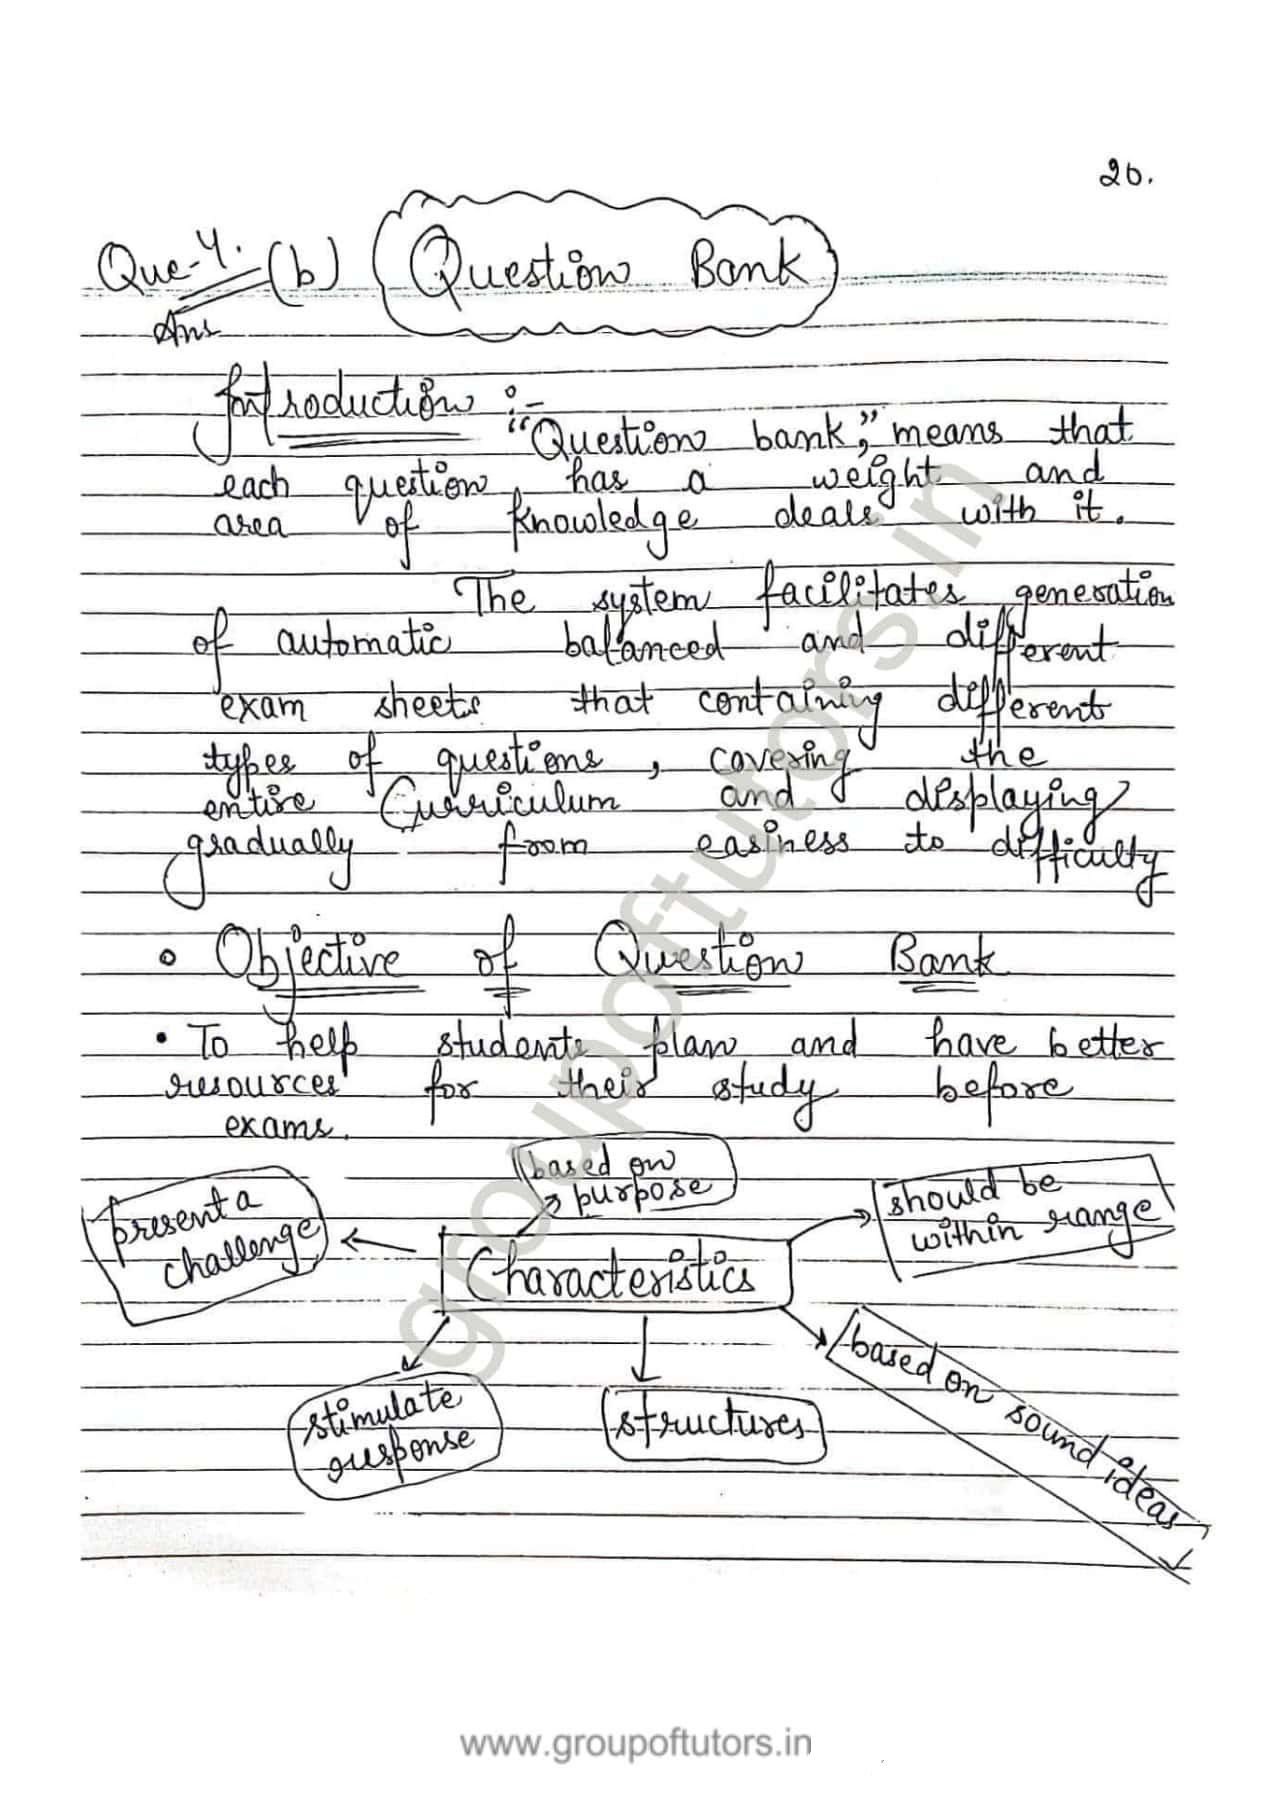 20.
Que-4. (b) Question Bank
Ans
Introduction :-
"Question bank," means that
each question has a weight and
area of knowledge deals with it.
The system facilitates generation
of automatic balanced and different
exam sheets that containing different
types of questions, covering the
entire Curriculum and displaying
gradually from easiness to difficulty
Objective of Question Bank
• To help students plan and have better
resources for their study before
exams.
based on
purpose
present a
challenge
should be
within range
Characteristics
based on sound ideas
stimulate
response
structures
groupoftutors.in
www.groupoftutors.in